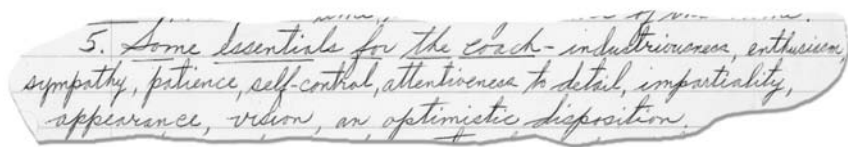 5. Some essentials for the coach - industriousness, enthusiasm,
sympathy, patience, self-control, attentiveness to detail, impartiality,
appearance, vision, an optimistic disposition.